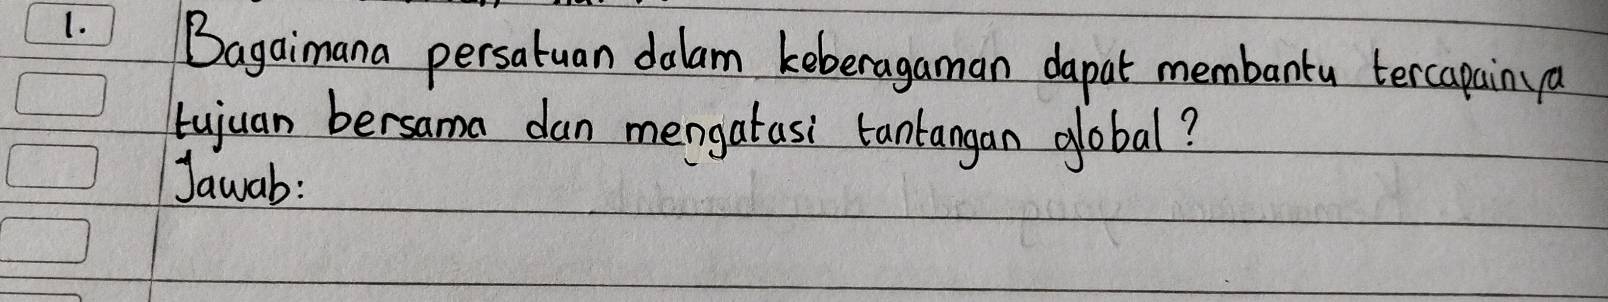 1. Bagaimana persatuan dalam keberagaman dapat membantu tercapainya
tujuan bersama dan mengatasi tantangan global?
Jawab: